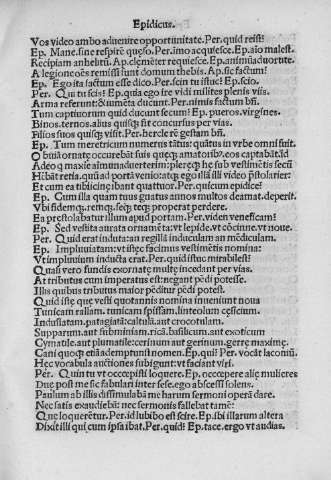 Epidicus.
Vos video ambo aduenire opportunitate. Per. quid reist?
Ep. Mane. sine respirē queso. Per. imo acquiesce. Ep. aīo malest.
Recipiam anhelitū. Ap. clemēter requiesce. Ep. animū aduortite.
A legione oēs remissi sunt domum thebis. Ap. sic factum?
Ep. Ego ita factum esse dico. Per. scin tu istuc? Ep. scio.
Per. Qui tu scis? Ep. quia ego ire vidi milites plenis viis.
Arma referunt: & iumēta ducunt. Per. nimis factum bn̄.
Tum captiuorum quid ducunt secum? Ep. pueros. virgines.
Binos. ternos. alius quisq̄ fit concursus per vias.
Filios suos quisq̄ visit. Per. hercle rē gestam bn̄.
Ep. Tum meretricum numerus tātus: quātus in vrbe omni fuit.
Obuiā ornatę occurrebāt suis quęq̄ amatoribꝰ. eos captabāt. id
Adeo q̄ maxie aīmum aduerterim: plereq̄ hę sub vestimētis secū
Hēbāt retia. quū ad portā venio: atq̄ ego illā illi video p̄stolarier:
Et cum ea tibicinę ibant quattuor. Per. quicum epidice?
Ep. Cum illa quam tuus gnatus annos multos deamat. deperit.
Vbi fidemq̄. remq̄. seq̄. teq̄. properat perdere.
Ea prestolabatur illum apud portam. Per. viden veneficam?
Ep. Sed vestita aurata ornata: vt lepide. vt cōcinne. vt noue.
Per. Quid erat induta: an regillā induculam an mēdiculam.
Ep. Impluuiatam: vt istęc faciunt vestimētis nomina:
Vt impluuium inducta erat. Per. quid istuc mirabilest?
Quasi vero fundis exornatę multę incedant per vias.
At tributus cum imperatus est: negant pēdi potesse.
Illis quibus tributus maior pēditur pēdi potest.
Quid istę que vesti quotannis nomina inueniunt noua
Tunicam rallam. tunicam spissam. linteolum cęsicium.
Indusiatam. patagiatā: caltulā. aut crocotulam.
Supparum. aut subminiam. ricā. basilicum. aut exoticum
Cymatile. aut plumatile: cerinum aut gerinum. gerre maximę.
Cani quoq̄ etiā ademptumst nomen. Ep. qui? Per. vocāt laconicū.
Hęc vocabula auctiones subigunt: vt faciant viri.
Per. Quin tu vt occoepisti loquere. Ep. occoepere alię mulieres
Due post me sic fabulari inter sese. ego abscessi solens.
Paulum ab illis dissimulabā me harum sermoni operā dare.
Nec satis exaudiebā: nec sermonis fallebat tamē:
Que loquerētur. Per. id lubido est scire. Ep. ibi illarum altera
Dixit illi qui cum ipsa ibat. Per. quid? Ep. tace. ergo vt audias.